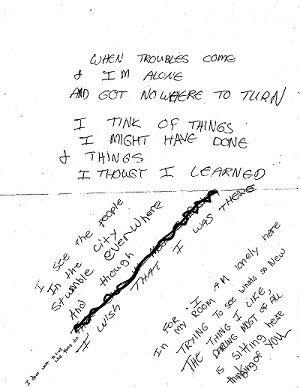 WHEN TROUBLES COME
& I'M ALONE
AND GOT NOWHERE TO TURN
I TINK OF THINGS
I MIGHT HAVE DONE
& THINGS
I THOUST I LEARNED
I see the people
In the city
Stumble everwhere
And though
I wish THAT I WAS THERE
FOR I AM lonely here
In my ROOM
TRYING TO see whats so New
THE THING I LIKE,
DARING MOST OF ALL
is sitting here
thinking of YOU